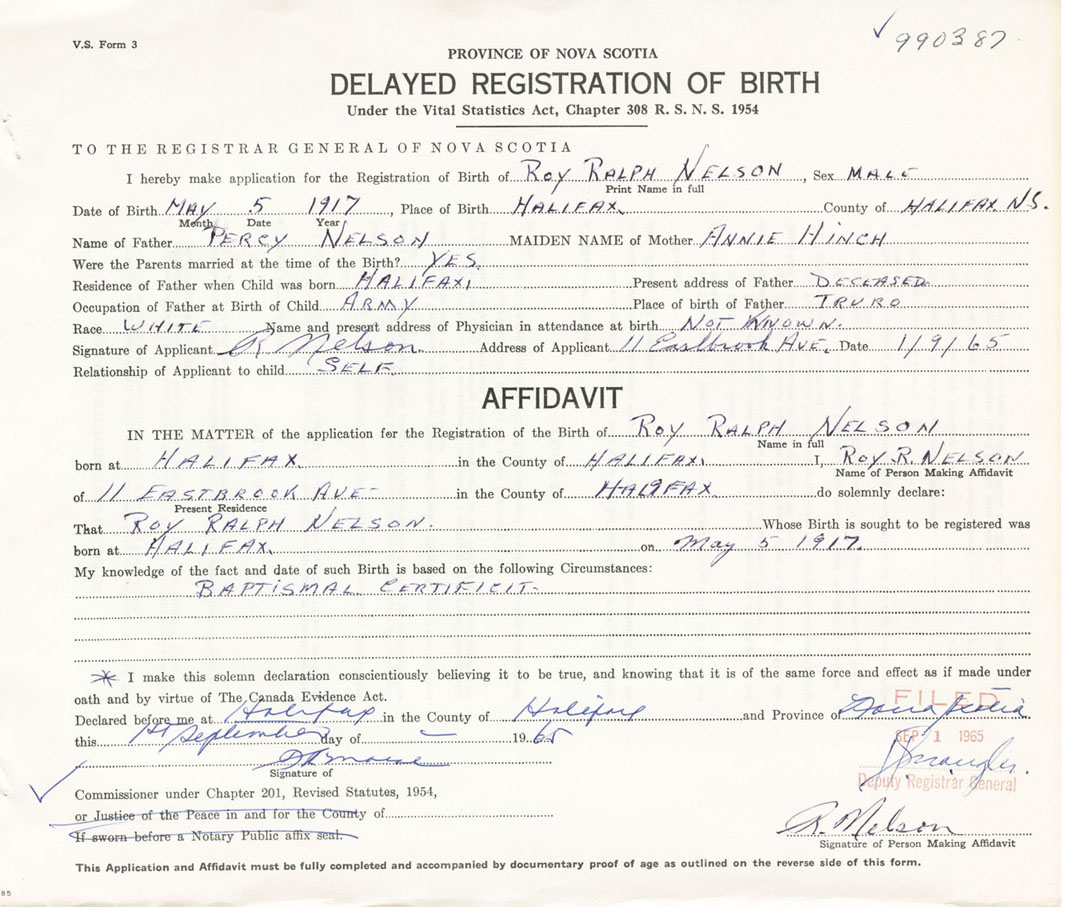 V.S. Form 3
990387
PROVINCE OF NOVA SCOTIA
DELAYED REGISTRATION OF BIRTH
Under the Vital Statistics Act, Chapter 308 R. S. N. S. 1954
TO THE REGISTRAR GENERAL OF NOVA SCOTIA
I hereby make application for the Registration of Birth of ROY RALPH NELSON, Sex MALE
Print Name in full
Date of Birth MAY 5 1917, Place of Birth HALIFAX, County of HALIFAX N.S.
Month Date Year
Name of Father PERCY NELSON MAIDEN NAME of Mother ANNIE HINCH
Were the Parents married at the time of the Birth? YES.
Residence of Father when Child was born HALIFAX, Present address of Father DECEASED.
Occupation of Father at Birth of Child ARMY Place of birth of Father TRURO
Race WHITE Name and present address of Physician in attendance at birth NOT KNOWN.
Signature of Applicant R Nelson. Address of Applicant 11 Eastbrook AVE, Date 1/9/65
Relationship of Applicant to child SELF.
AFFIDAVIT
IN THE MATTER of the application for the Registration of the Birth of ROY RALPH NELSON
Name in full
born at HALIFAX in the County of HALIFAX, I, ROY R. NELSON
Name of Person Making Affidavit
of 11 EASTBROOK AVE- in the County of HALIFAX do solemnly declare:
Present Residence
That ROY RALPH NELSON. Whose Birth is sought to be registered was
born at HALIFAX. on May 5 1917.
My knowledge of the fact and date of such Birth is based on the following Circumstances:
BAPTISMAL CERTIFICIT-
I make this solemn declaration conscientiously believing it to be true, and knowing that it is of the same force and effect as if made under
oath and by virtue of The Canada Evidence Act.
FILED
Declared before me at Halifax in the County of Halifax and Province of Nova Scotia
this 1st September day of - 1965
SEP 1 1965
Signature of
Deputy Registrar General
Commissioner under Chapter 201, Revised Statutes, 1954,
or Justice of the Peace in and for the County of
If sworn before a Notary Public affix seal.
R. Nelson
Signature of Person Making Affidavit
This Application and Affidavit must be fully completed and accompanied by documentary proof of age as outlined on the reverse side of this form.
85